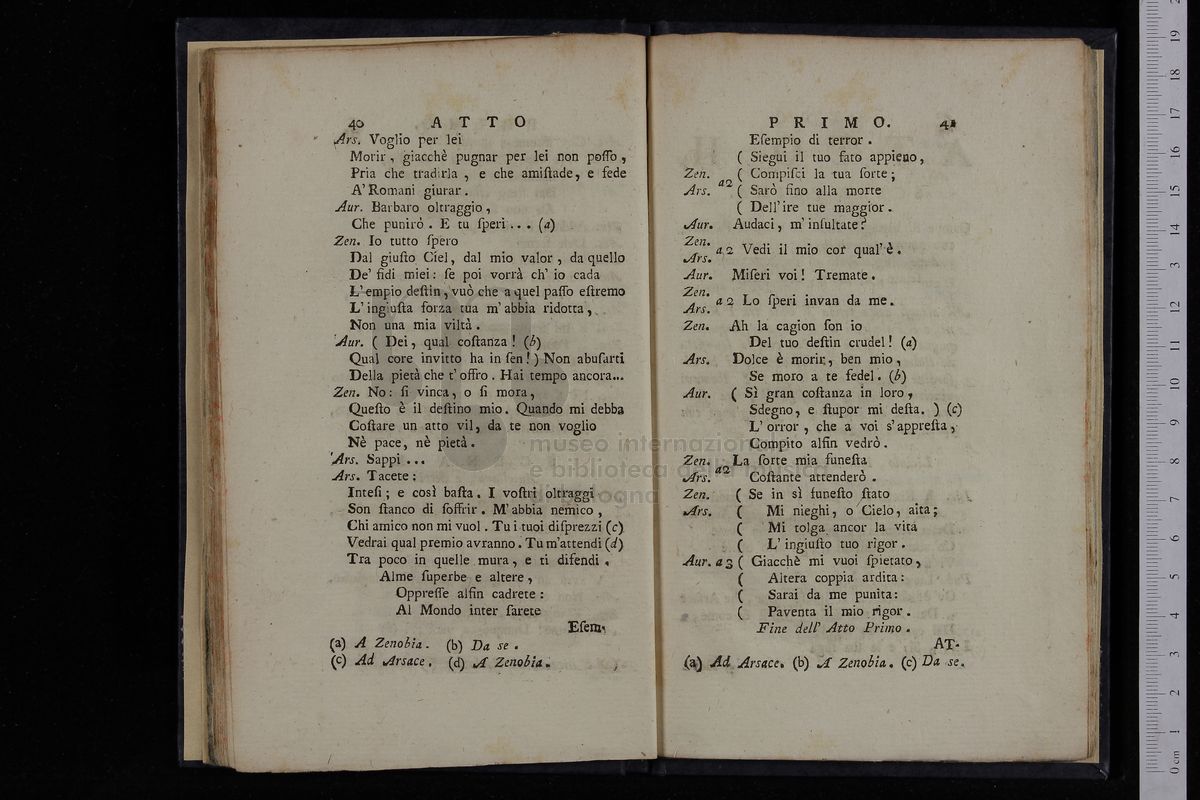 40 ATTO
Ars. Voglio per lei
Morir, giacchè pugnar per lei non poſſo,
Pria che tradirla, e che amiſtade, e fede
A' Romani giurar.
Aur. Barbaro oltraggio,
Che punirò. E tu ſperi... (a)
Zen. Io tutto ſpero
Dal giuſto Ciel, dal mio valor, da quello
De' fidi miei: ſe poi vorrà ch' io cada
L' empio deſtin, vuò che a quel paſſo eſtremo
L' ingiuſta forza tua m' abbia ridotta,
Non una mia viltà.
Aur. ( Dei, qual coſtanza! (b)
Qual core invitto ha in ſen! ) Non abuſarti
Della pietà che t' offro. Hai tempo ancora...
Zen. No: ſi vinca, o ſi mora,
Queſto è il deſtino mio. Quando mi debba
Coſtare un atto vil, da te non voglio
Nè pace, nè pietà.
Ars. Sappi...
Ars. Tacete:
Inteſi; e così baſta. I voſtri oltraggi
Son ſtanco di ſoffrir. M' abbia nemico,
Chi amico non mi vuol. Tu i tuoi diſprezzi (c)
Vedrai qual premio avranno. Tu m'attendi (d)
Tra poco in quelle mura, e ti difendi.
Alme ſuperbe e altere,
Oppreſſe alfin cadrete:
Al Mondo inter ſarete
Eſem-
(a) A Zenobia. (b) Da se.
(c) Ad Arsace. (d) A Zenobia.
PRIMO. 41
Eſempio di terror.
( Siegui il tuo fato appieno,
Zen. ( Compiſci la tua ſorte;
a2
Ars. ( Sarò fino alla morte
( Dell' ire tue maggior.
Aur. Audaci, m' inſultate?
Zen.
a2 Vedi il mio cor qual' è.
Ars.
Aur. Miſeri voi! Tremate.
Zen.
a2 Lo ſperi invan da me.
Ars.
Zen. Ah la cagion ſon io
Del tuo deſtin crudel! (a)
Ars. Dolce è morir, ben mio,
Se moro a te fedel. (b)
Aur. ( Sì gran coſtanza in loro,
Sdegno, e ſtupor mi deſta. ) (c)
L' orror, che a voi s' appreſta,
Compito alfin vedrò.
Zen. La ſorte mia funeſta
a2
Ars. Coſtante attenderò.
Zen. ( Se in sì funeſto ſtato
Ars. ( Mi nieghi, o Cielo, aita;
( Mi tolga ancor la vita
( L' ingiuſto tuo rigor.
Aur. a3 ( Giacchè mi vuoi ſpietato,
( Altera coppia ardita:
( Sarai da me punita:
( Paventa il mio rigor.
Fine dell' Atto Primo.
AT-
(a) Ad Arsace. (b) A Zenobia. (c) Da se.
museo internazionale
e biblioteca della musica
di bologna
0 cm 1 2 3 4 5 6 7 8 9 10 11 12 13 14 15 16 17 18 19